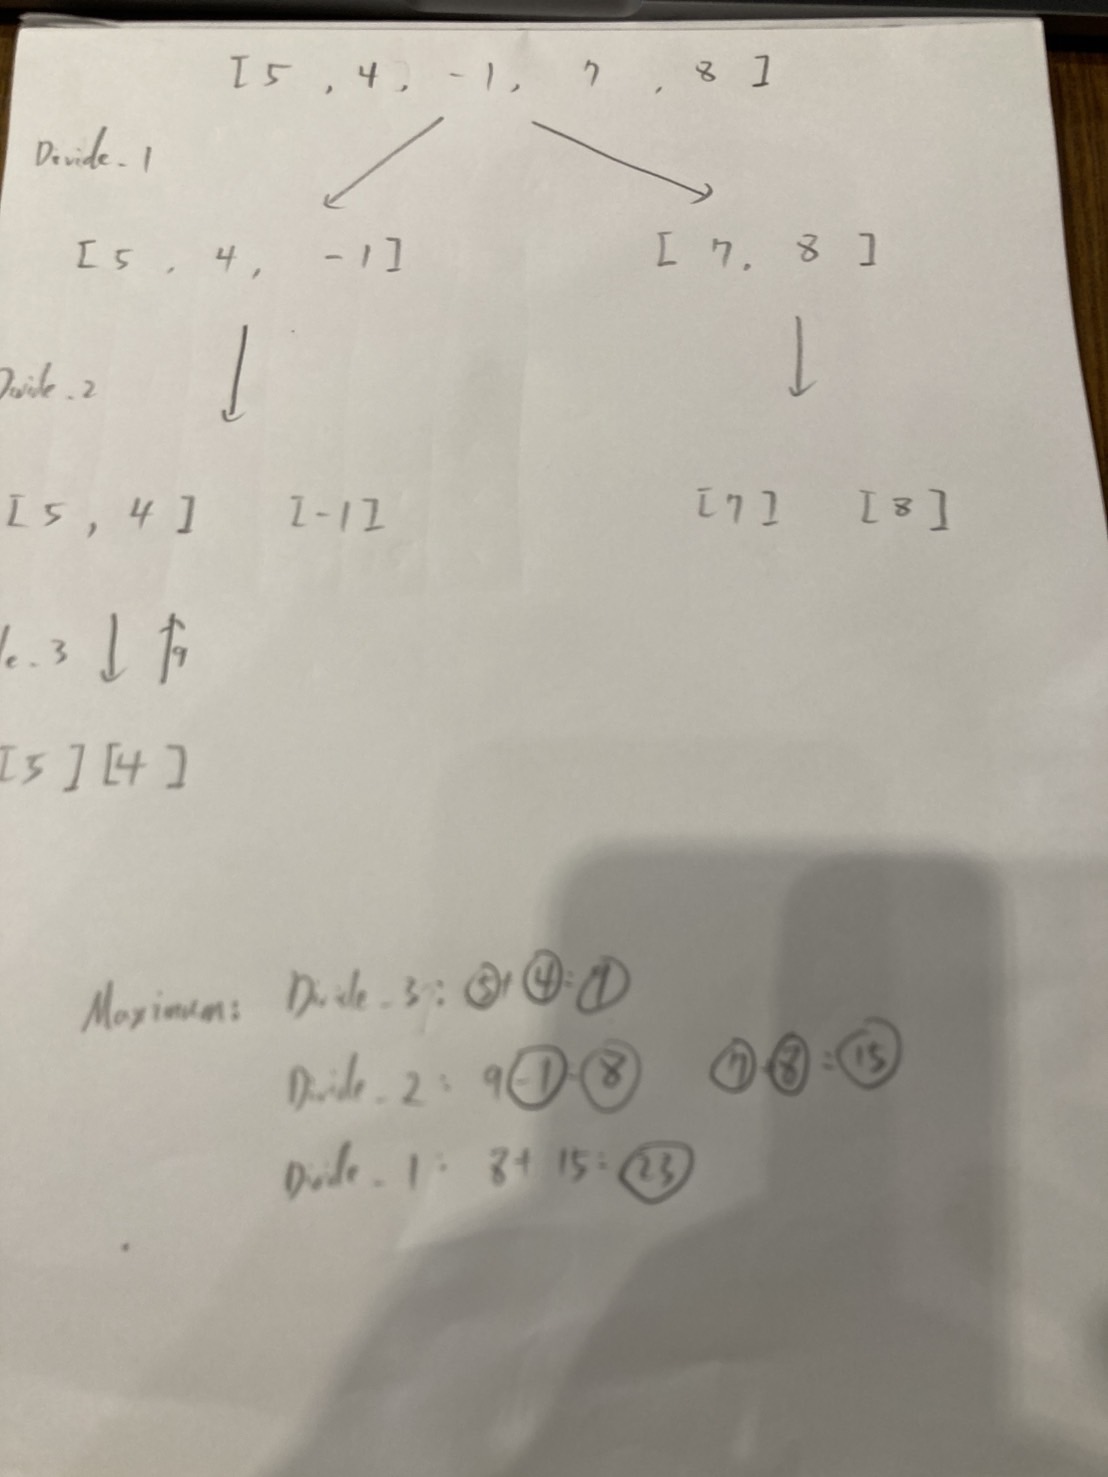 [5, 4, -1, 7, 8]
Divide-1
[5, 4, -1] [7, 8]
Divide-2
[5, 4] [-1] [7] [8]
le-3 9
[5][4]
Maximum: Divide-3: 5+4=9
Divide-2: 9-1=8 7+8=15
Divide-1: 8+15=23